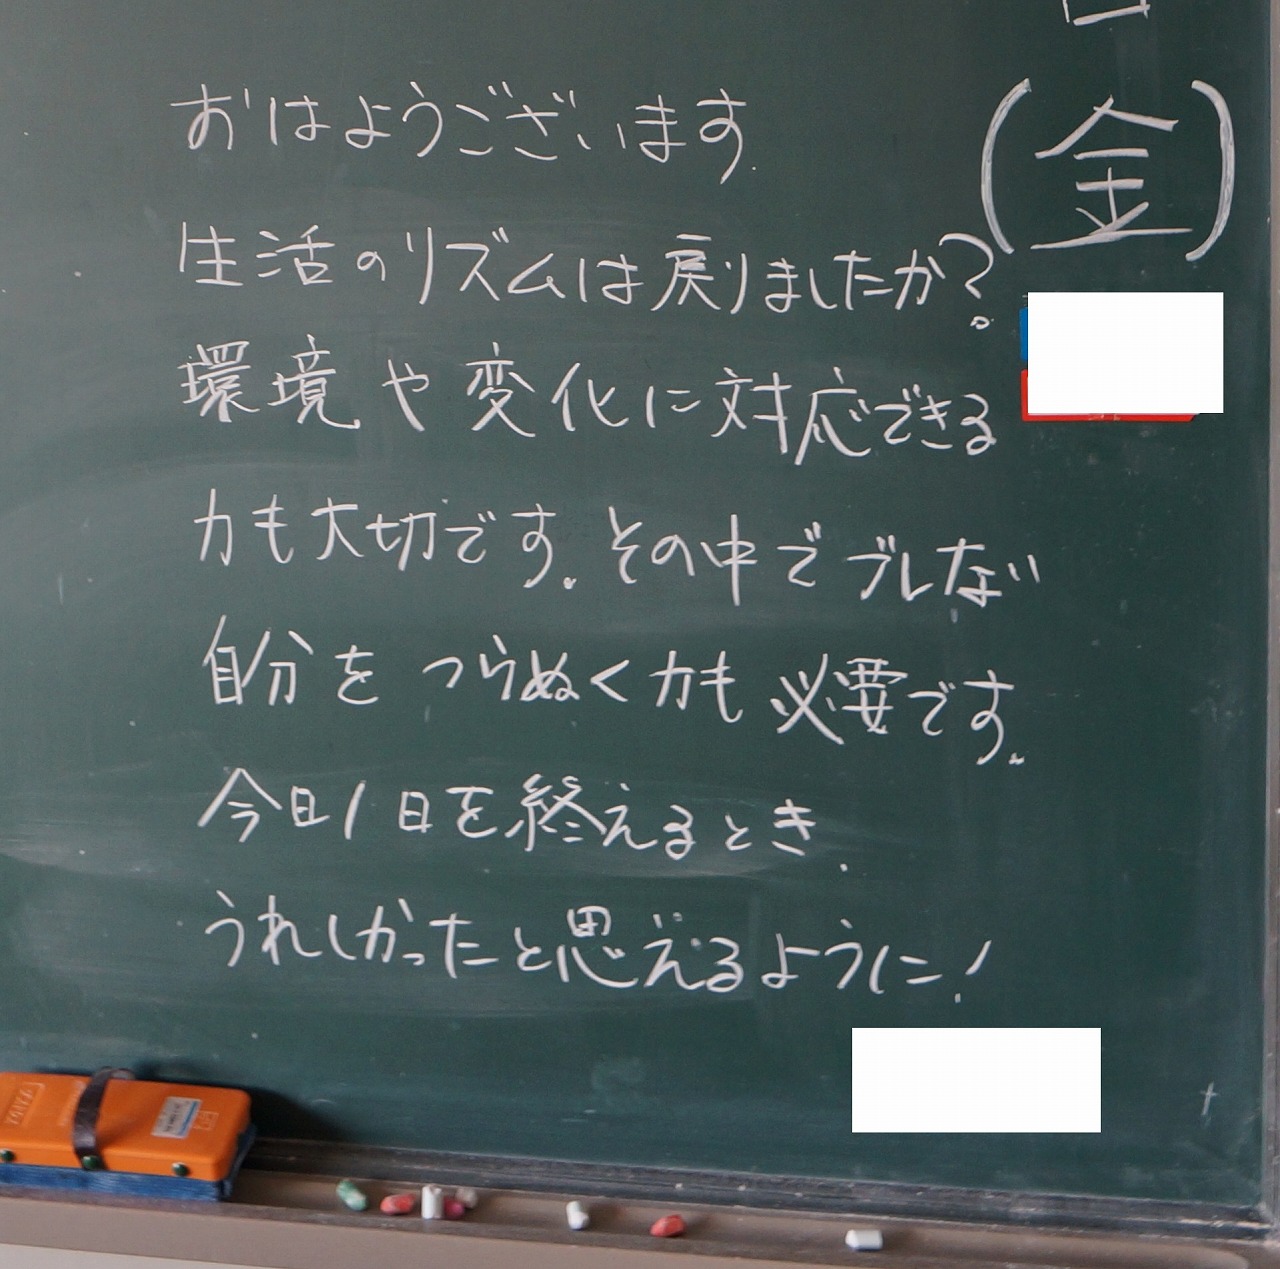 日
(金)
おはようございます.
生活のリズムは戻りましたか?
環境や変化に対応できる
力も大切です。その中でブレない
自分をつらぬく力も必要です。
今日1日を終えるとき、
うれしかったと思えるように!